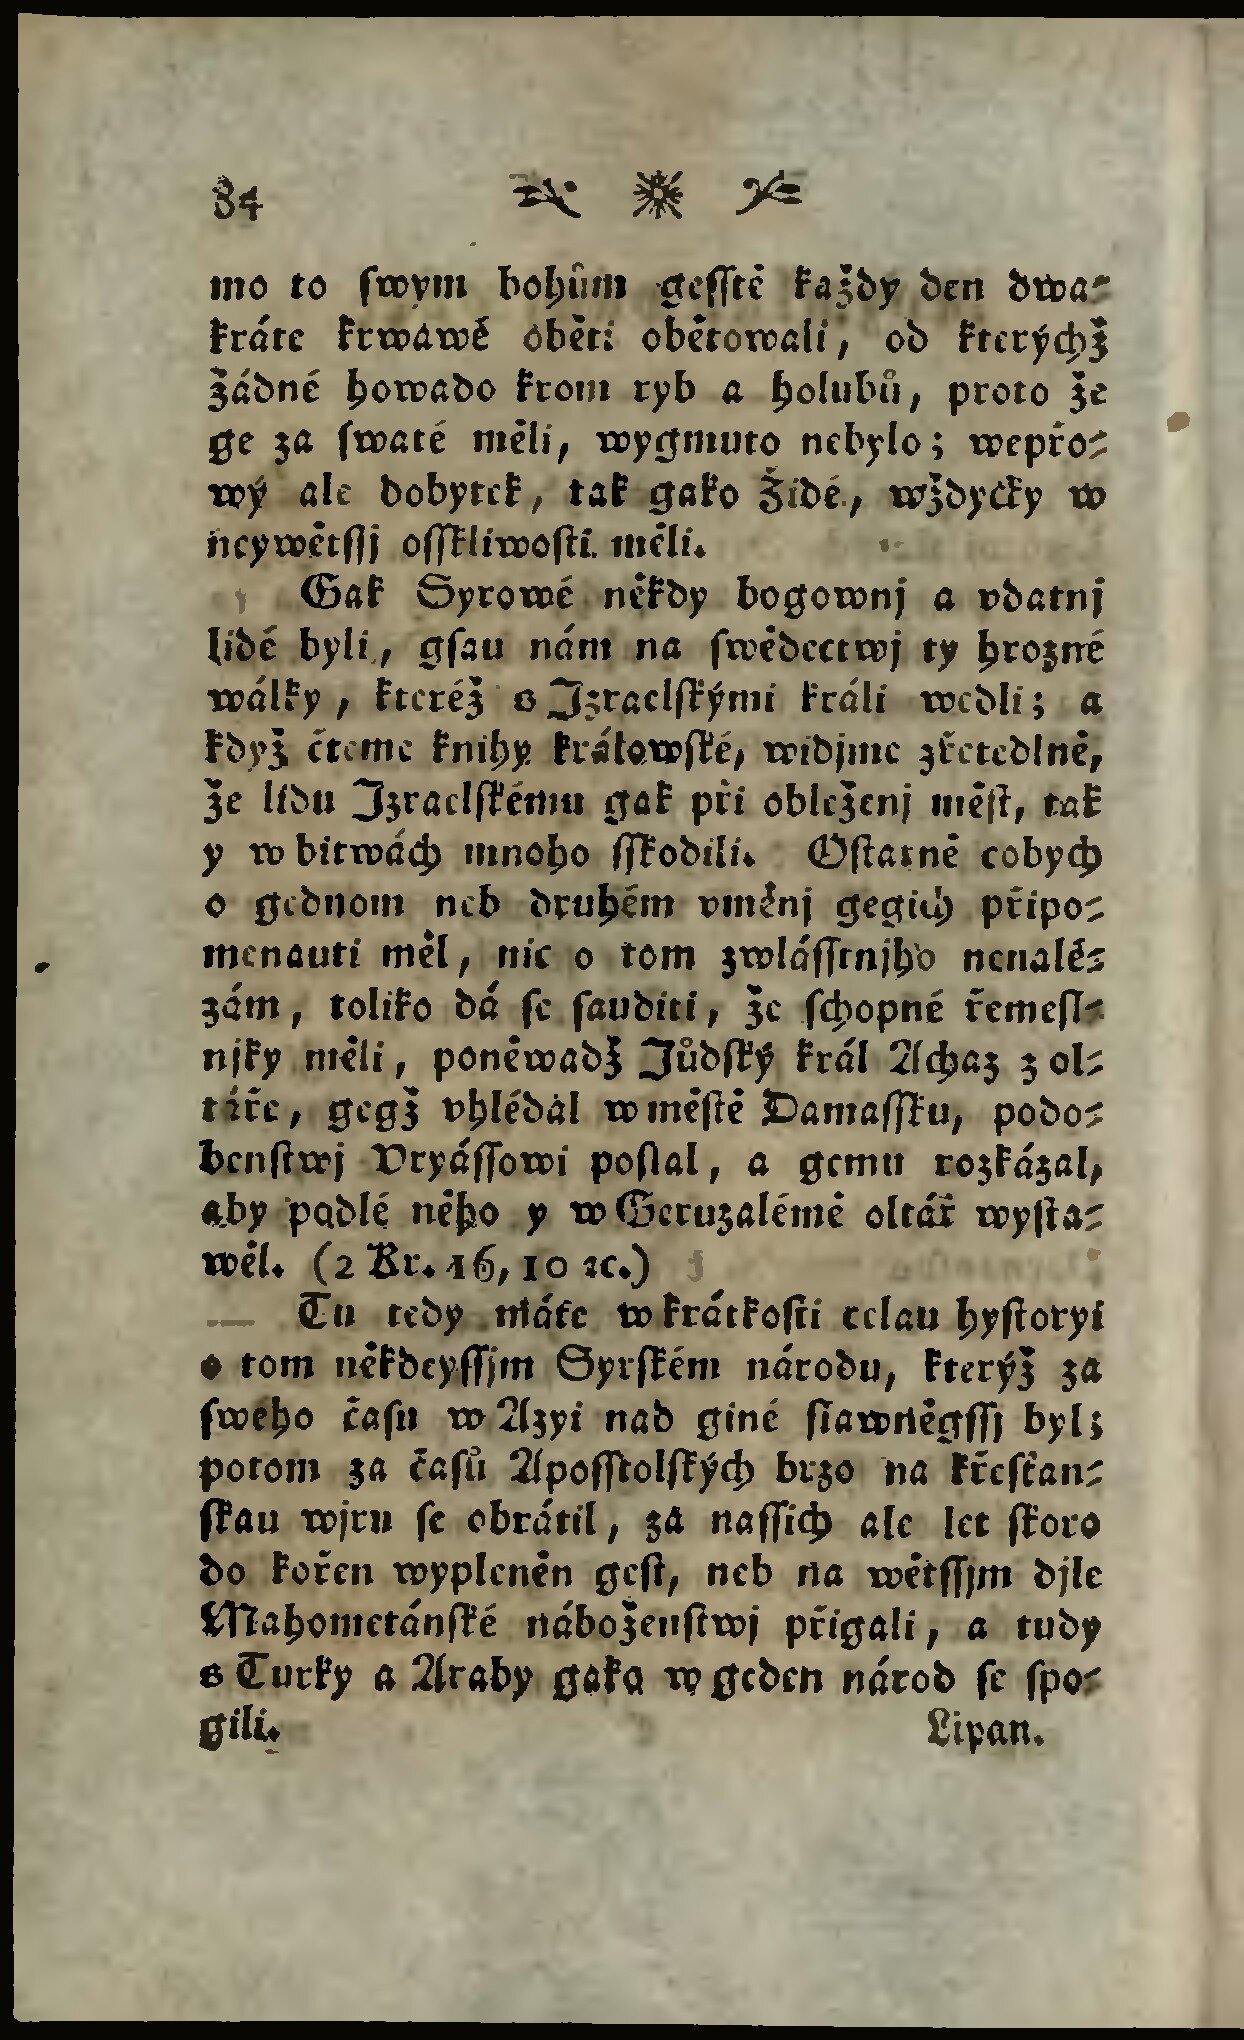 84
mo to ſwym bohům geſſtě každy den dwa-
kráte krwawé oběti obětowali, od kterýchž
žádné howado krom ryb a holubů, proto že
ge za ſwaté měli, wygmuto nebylo; wepřo-
wý ale dobytek, tak gako Židé, wždycky w
neywětſſj oſſkliwoſti měli.
Gak Syrowé někdy bogownj a vdatnj
lidé byli, gſau nám na ſwědectwj ty hrozné
wálky, kteréž s Izraelſkými králi wedli; a
když čteme knihy králowſké, widjme zřetedlně,
že lidu Izraelſkému gak při obleženj měſt, tak
y w bitwách mnoho ſſkodili. Oſtatně cobych
o gednom neb druhém vměnj gegich připo-
menauti měl, nic o tom zwláſſtnjho nenalé-
zám, toliko dá ſe ſauditi, že ſchopné řemeſl-
njky měli, poněwadž Jůdſký král Achaz z ol-
táře, gegž vhlédal w měſtě Damaſſku, podo-
benſtwj Vryáſſowi poſlal, a gemu rozkázal,
aby podlé něho y w Geruzalémě oltář wyſta-
wěl. (2 Kr. 16, 10 ꝛc.)
Tu tedy máte w krátkoſti celau hyſtoryi
o tom někdeyſſjm Syrſkém národu, kterýž za
ſweho čaſu w Azyi nad giné ſlawněgſſj byl;
potom za čaſů Apoſſtolſkých brzo na křeſťan-
ſkau wjru ſe obrátil, za naſſich ale let ſkoro
do kořen wypleněn geſt, neb na wětſſjm djle
Mahometánſké náboženſtwj přigali, a tudy
s Turky a Araby gako w geden národ ſe ſpo-
gili.
Lipan.